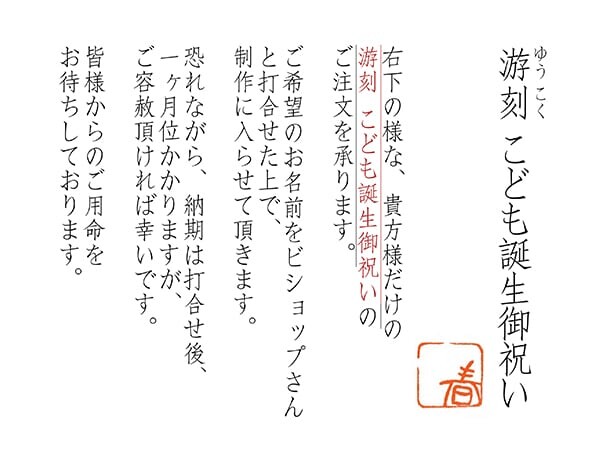 ゆうこく
游刻 こども誕生御祝い
春
右下の様な、貴方様だけの
游刻 こども誕生御祝いの
ご注文を承ります。
ご希望のお名前をビショップさん
と打合せた上で、
制作に入らせて頂きます。
恐れながら、納期は打合せ後、
一ヶ月位かかりますが、
ご容赦頂ければ幸いです。
皆様からのご用命を
お待ちしております。